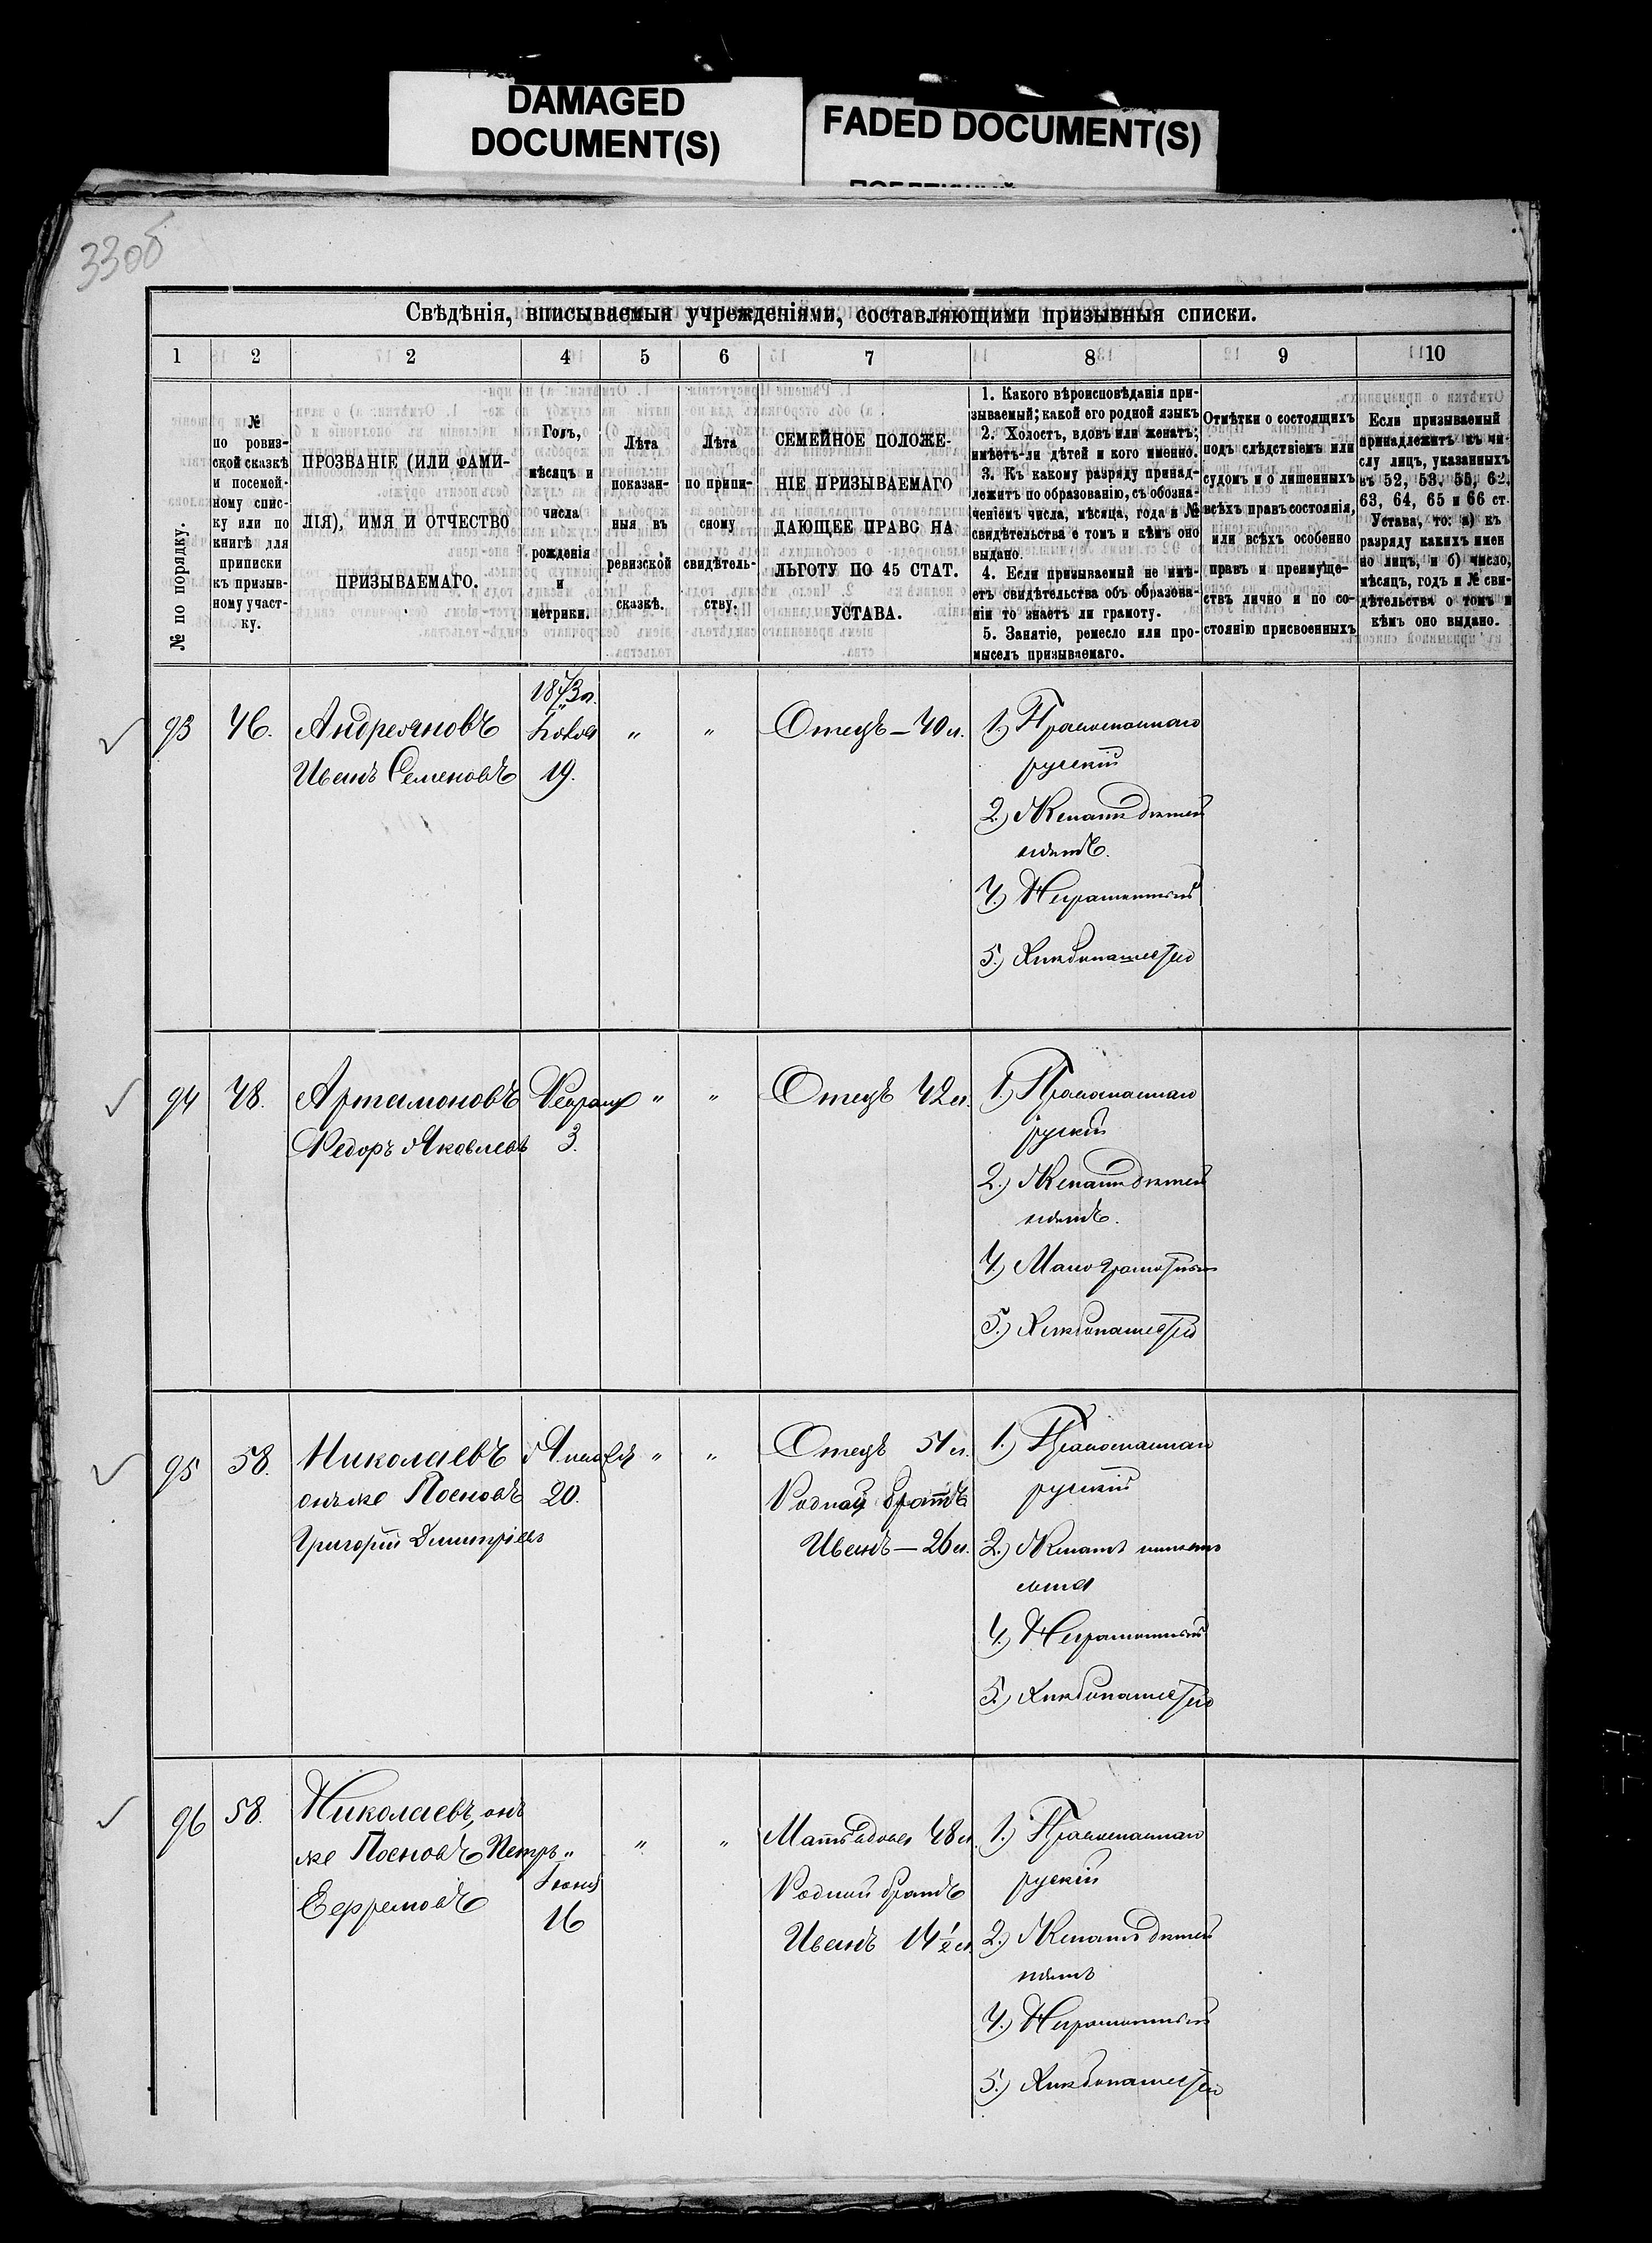 DAMAGED
DOCUMENT(S)
FADED DOCUMENT(S)
33об
Свѣдѣнія, вписываемыя учрежденіями, составляющими призывныя списки.
1 2 2 4 5 6 7 8 9 10
№ по порядку.
№
по ровиз-
ской сказкѣ
и посемей-
ному спис-
ку или по
книгѣ для
приписки
къ призыв-
ному участ-
ку.
ПРОЗВАНІЕ (ИЛИ ФАМИ-
ЛІЯ), ИМЯ И ОТЧЕСТВО
ПРИЗЫВАЕМАГО.
Годъ,
мѣсяцъ и
числа
рожденія
и
метрики.
Лѣта
показан-
ныя въ
ревизской
сказкѣ.
Лѣта
по припи-
сному
свидѣтель-
ству.
СЕМЕЙНОЕ ПОЛОЖЕ-
НІЕ ПРИЗЫВАЕМАГО
ДАЮЩЕЕ ПРАВО НА
ЛЬГОТУ ПО 45 СТАТ.
УСТАВА.
1. Какого вѣроисповѣданія при-
зываемый; какой его родной языкъ
2. Холостъ, вдовъ или женатъ;
имѣетъ-ли дѣтей и кого именно.
3. Къ какому разряду принад-
лежитъ по образованію, съ обозна-
ченіемъ числа, мѣсяца, года и №
свидѣтельства о томъ и кѣмъ оно
выдано.
4. Если призываемый не имѣ-
етъ свидѣтельства объ образова-
ніи то знаетъ ли грамоту.
5. Занятіе, ремесло или про-
мыселъ призываемаго.
Отмѣтки о состоящихъ
подъ слѣдствіемъ или
судомъ и о лишенныхъ
всѣхъ правъ состоянія,
или всѣхъ особенно
правъ и преимуще-
ствъ лично и по со-
стоянію присвоенныхъ
Если призываемый
принадлежитъ къ чи-
слу лицъ, указанныхъ
въ 52, 53, 55, 62,
63, 64, 65 и 66 ст.
Устава, то: а) къ
разряду какихъ имен
но лицъ, и б) число,
мѣсяцъ, годъ и № сви-
дѣтельства о томъ и
кѣмъ оно выдано.
93
46.
Андреяновъ
Иванъ Семеновъ
1873г.
19.
„
„
Отецъ — 40 л.
1.) Православнаго
русскій
2.) Женатъ дѣтей
нѣтъ.
4.) Неграмотный
5.) Хлѣбопашество
94
48.
Артамоновъ
Ѳедоръ Яковлевъ
Февраля
3.
„
„
Отецъ 42 л.
1.) Православнаго
русскій
2.) Женатъ дѣтей
нѣтъ.
4.) Мало грамотный
5.) Хлѣбопашество
95
58.
Николаевъ
онъ же Посновъ
Григорій Дмитріевъ
Января
20.
„
„
Отецъ 51 л.
Родной братъ
Иванъ — 26 л.
1.) Православнаго
русскій
2.) Женатъ имѣетъ
сына
4.) Неграмотный
5.) Хлѣбопашество
96
58.
Николаевъ, онъ
же Посновъ Петръ
Ефремовъ
„
Іюня
16
„
„
Мать вдова 48 л.
Родной братъ
Иванъ 14 ½ л.
1.) Православнаго
русскій
2.) Женатъ дѣтей
нѣтъ
4.) Неграмотный
5.) Хлѣбопашество